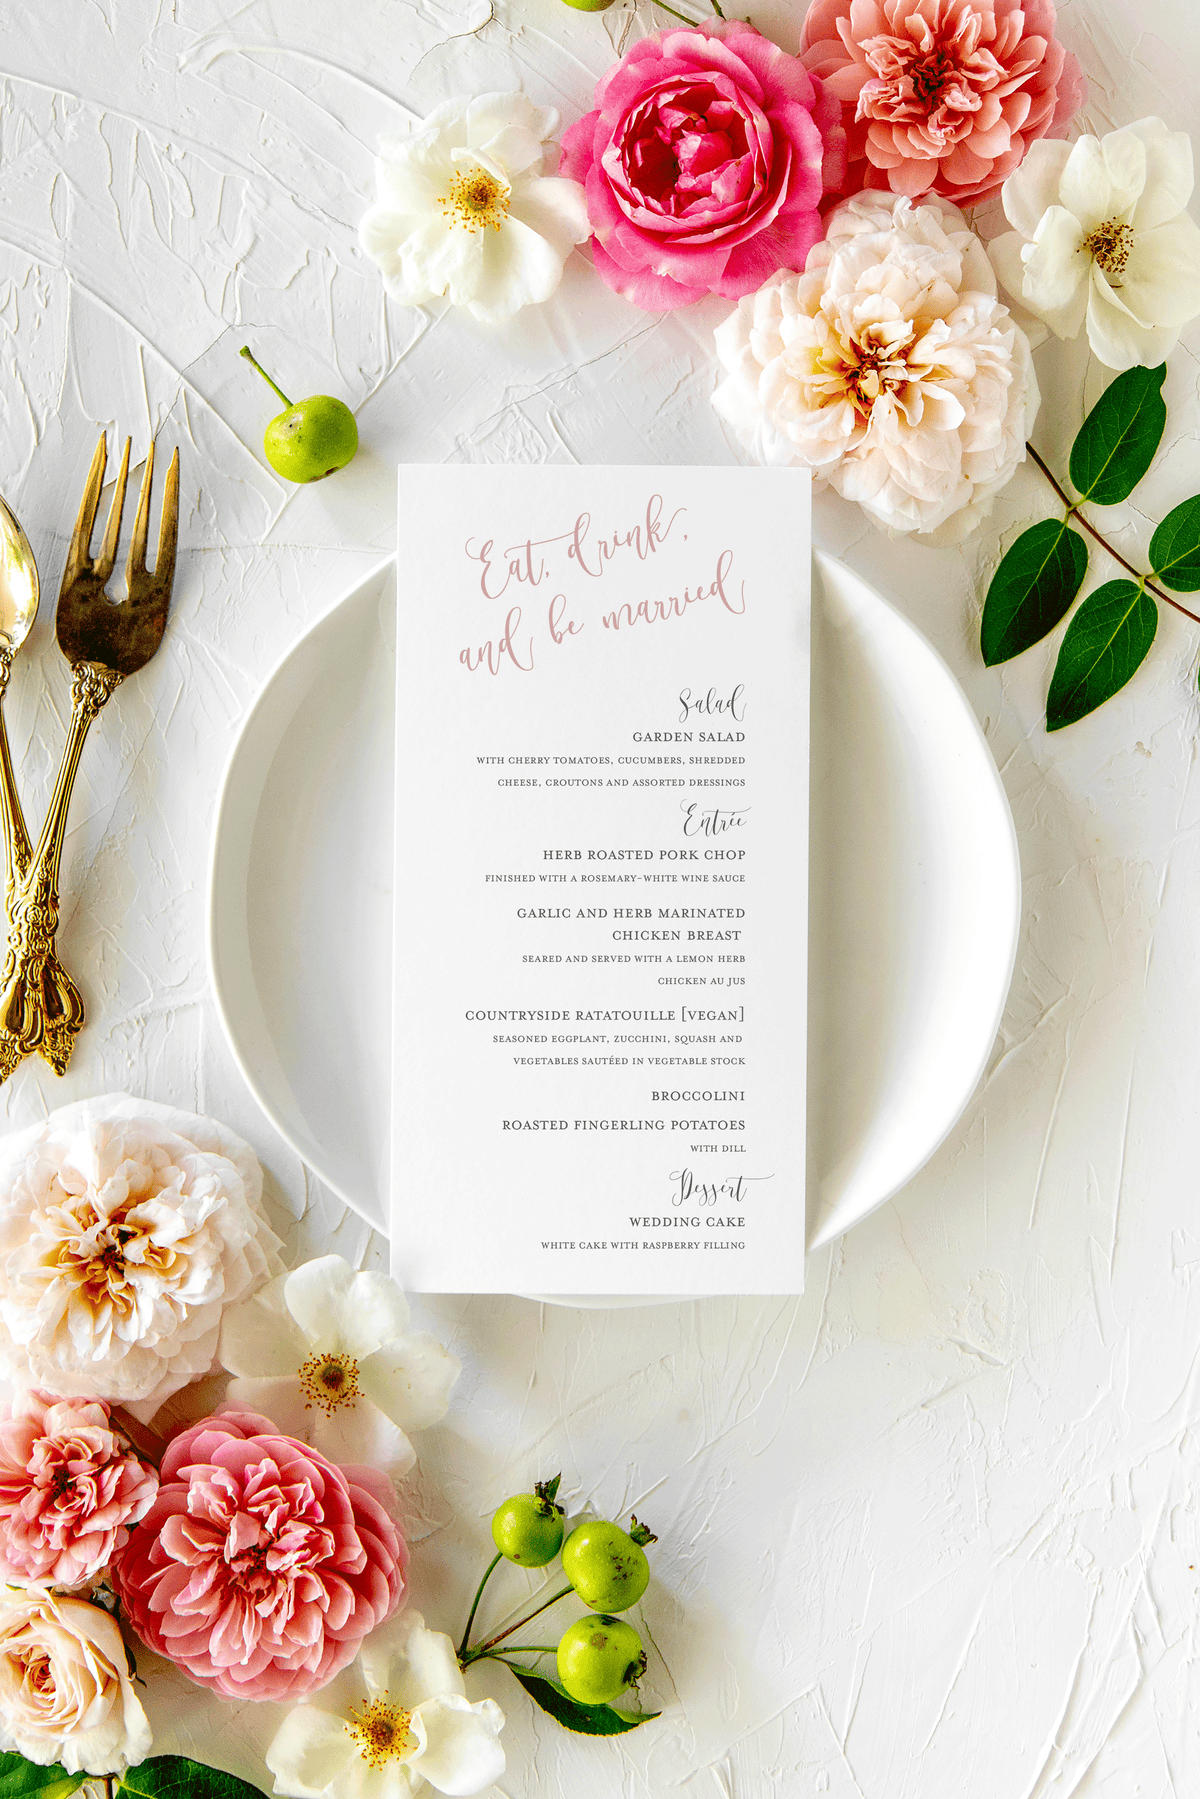 Eat, drink,
and be married
Salad
GARDEN SALAD
WITH CHERRY TOMATOES, CUCUMBERS, SHREDDED
CHEESE, CROUTONS AND ASSORTED DRESSINGS
Entrée
HERB ROASTED PORK CHOP
FINISHED WITH A ROSEMARY-WHITE WINE SAUCE
GARLIC AND HERB MARINATED
CHICKEN BREAST
SEARED AND SERVED WITH A LEMON HERB
CHICKEN AU JUS
COUNTRYSIDE RATATOUILLE [VEGAN]
SEASONED EGGPLANT, ZUCCHINI, SQUASH AND
VEGETABLES SAUTÉED IN VEGETABLE STOCK
BROCCOLINI
ROASTED FINGERLING POTATOES
WITH DILL
Dessert
WEDDING CAKE
WHITE CAKE WITH RASPBERRY FILLING